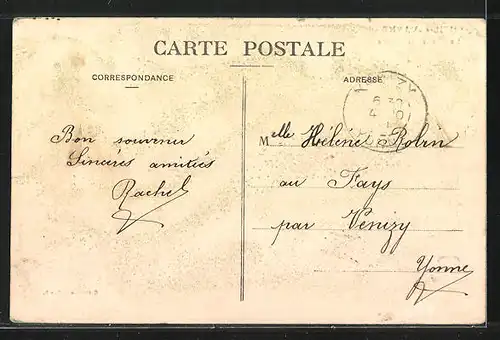 CARTE POSTALE
CORRESPONDANCE
ADRESSE
Bon souvenir
Sincères amitiés
Rachel
Melle Hélène Robin
au Fays
par Venizy
Yonne